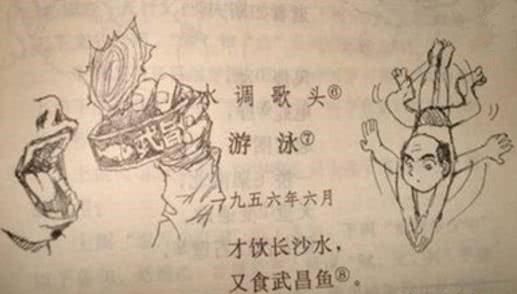 水调歌头⑥
游泳⑦
一九五六年六月
才饮长沙水，
又食武昌鱼⑧。
武昌